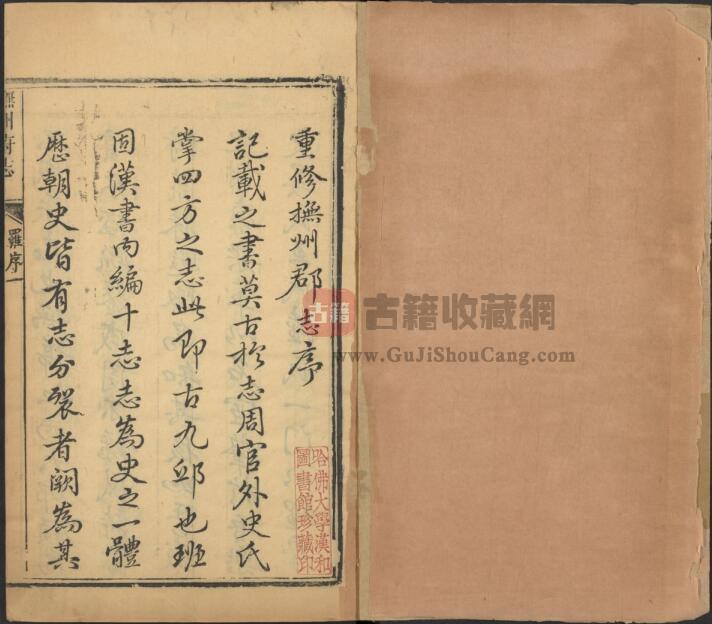 重修撫州郡志序
記載之書莫古於志周官外史氏
掌四方之志此即古九邱也班
固漢書內編十志志為史之一體
歷朝史皆有志分裂者闕為其
撫州府志
羅序一
哈佛大學漢和
圖書館珍藏印
古籍
古籍收藏網
www.GuJiShouCang.com